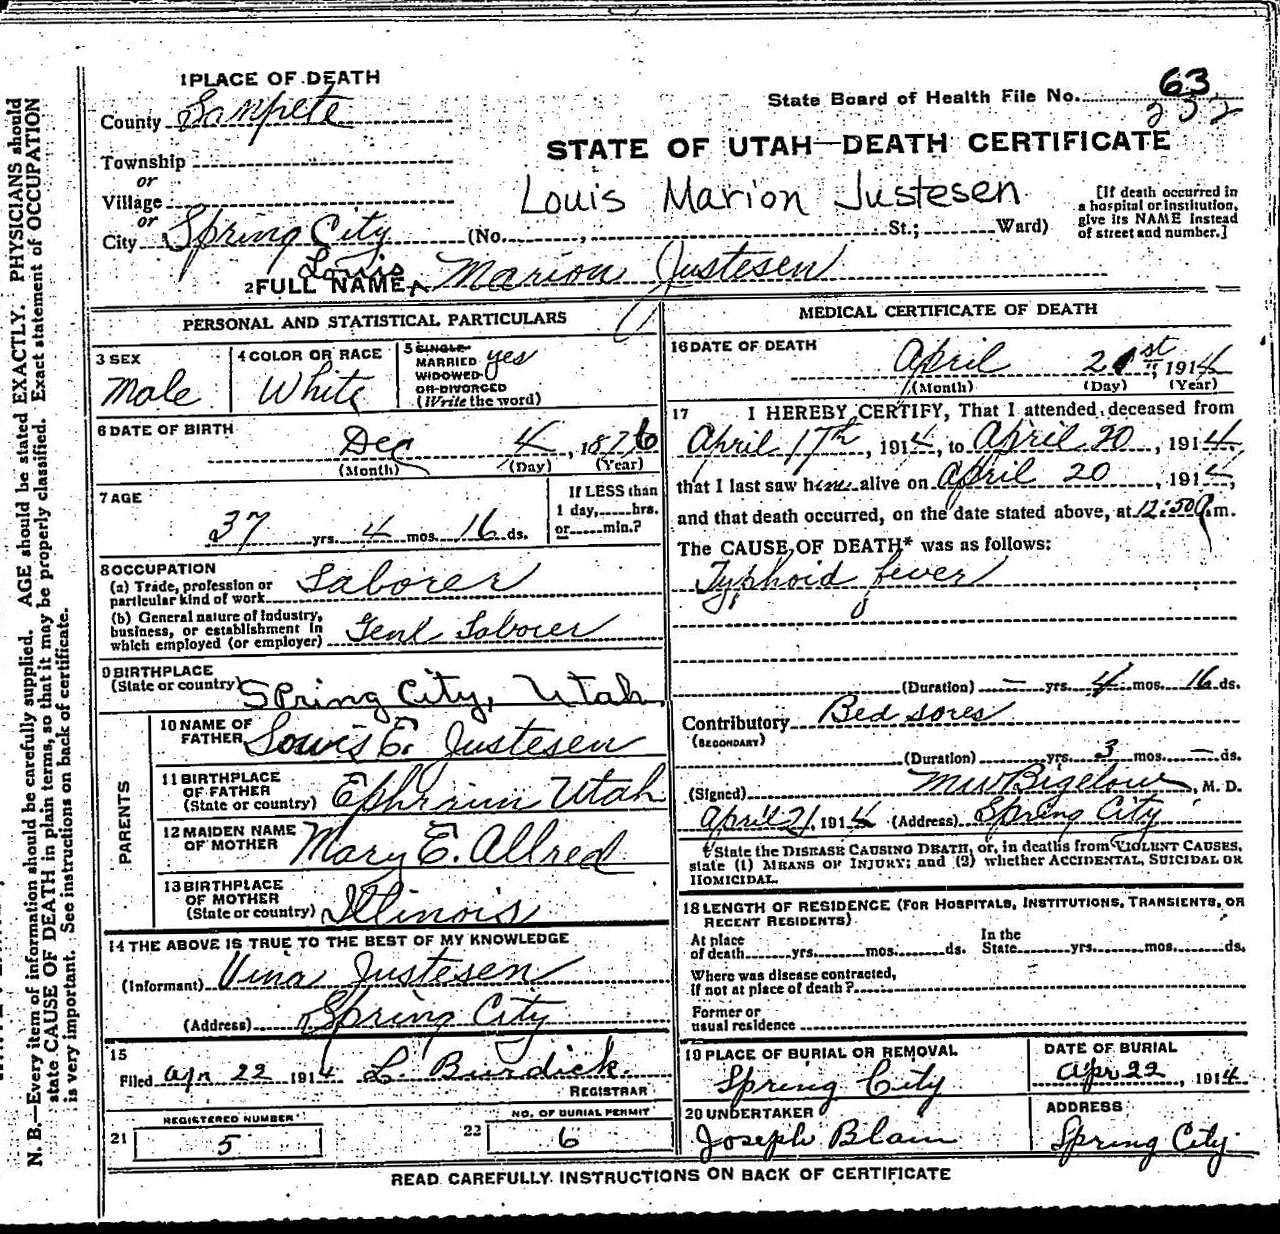 1 PLACE OF DEATH
County Sanpete
Township
or
Village
or
City Spring City (No. , St.; Ward)
State Board of Health File No. 63
232
STATE OF UTAH—DEATH CERTIFICATE
Louis Marion Justesen
[If death occurred in
a hospital or institution,
give its NAME instead
of street and number.]
Louis
2 FULL NAME Marion Justesen
PERSONAL AND STATISTICAL PARTICULARS
3 SEX
Male
4 COLOR OR RACE
White
5 SINGLE
MARRIED yes
WIDOWED
OR DIVORCED
(Write the word)
6 DATE OF BIRTH
Dec 4, 1876
(Month) (Day) (Year)
7 AGE
37 yrs. 4 mos. 16 ds.
If LESS than
1 day, hrs.
or min.?
8 OCCUPATION
(a) Trade, profession or
particular kind of work Laborer
(b) General nature of industry,
business, or establishment in
which employed (or employer) Genl Laborer
9 BIRTHPLACE
(State or country) Spring City, Utah
PARENTS
10 NAME OF
FATHER Louis E. Justesen
11 BIRTHPLACE
OF FATHER
(State or country) Ephriam Utah
12 MAIDEN NAME
OF MOTHER Mary E. Allred
13 BIRTHPLACE
OF MOTHER
(State or country) Illinois
14 THE ABOVE IS TRUE TO THE BEST OF MY KNOWLEDGE
(Informant) Vina Justesen
(Address) Spring City
15
Filed apr 22 1914 L. Burdick
REGISTRAR
REGISTERED NUMBER
21 5
NO. OF BURIAL PERMIT
22 6
MEDICAL CERTIFICATE OF DEATH
16 DATE OF DEATH
April 21st, 1914
(Month) (Day) (Year)
17 I HEREBY CERTIFY, That I attended deceased from
April 17th, 1914, to April 20, 1914,
that I last saw him alive on April 20, 1914,
and that death occurred, on the date stated above, at 12:50 m.
The CAUSE OF DEATH* was as follows:
Typhoid fever
(Duration) — yrs. 4 mos. 16 ds.
Contributory Bed sores
(SECONDARY)
(Duration) yrs. 3 mos. — ds.
(Signed) MW Bigelow, M. D.
April 21, 1914 (Address) Spring City
* State the DISEASE CAUSING DEATH, or, in deaths from VIOLENT CAUSES,
state (1) MEANS OF INJURY; and (2) whether ACCIDENTAL, SUICIDAL OR
HOMICIDAL.
18 LENGTH OF RESIDENCE (FOR HOSPITALS, INSTITUTIONS, TRANSIENTS, OR
RECENT RESIDENTS)
At place
of death yrs. mos. ds.
In the
State yrs. mos. ds.
Where was disease contracted,
if not at place of death?
Former or
usual residence
19 PLACE OF BURIAL OR REMOVAL
Spring City
DATE OF BURIAL
apr 22, 1914
20 UNDERTAKER
Joseph Blain
ADDRESS
Spring City
READ CAREFULLY INSTRUCTIONS ON BACK OF CERTIFICATE
N. B.—Every item of information should be carefully supplied. AGE should be stated EXACTLY. PHYSICIANS should
state CAUSE OF DEATH in plain terms, so that it may be properly classified. Exact statement of OCCUPATION
is very important. See instructions on back of certificate.